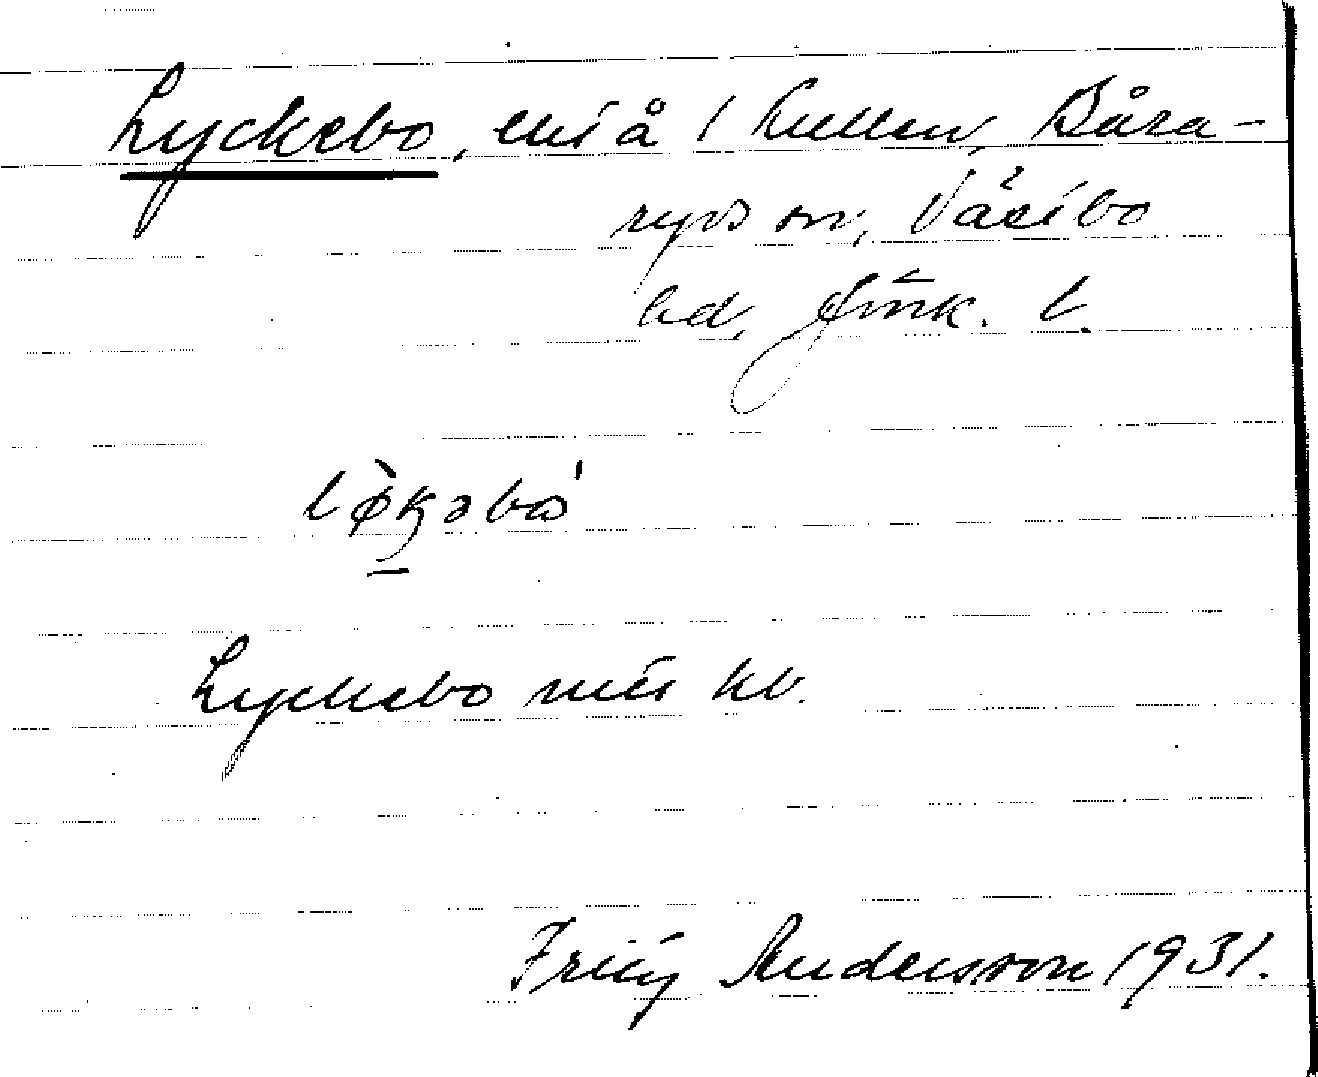 Lyckebo, enst å 1 Kullen, Båra-
ryds sn, Västbo
hd, Jönk. l.
lø̀kəbó
Lyckebo mtr kb.
Fritz Andersson 1931.